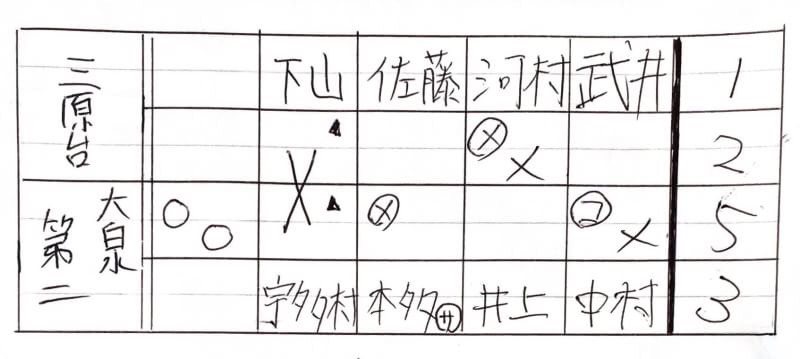 三原台 下山 佐藤 河村 武井 1
▲ ⓧ × 2
大泉第二 ○ ○ × ▲ ⓧ ㋙ × 5
宇多村 本多㋚ 井上 中村 3